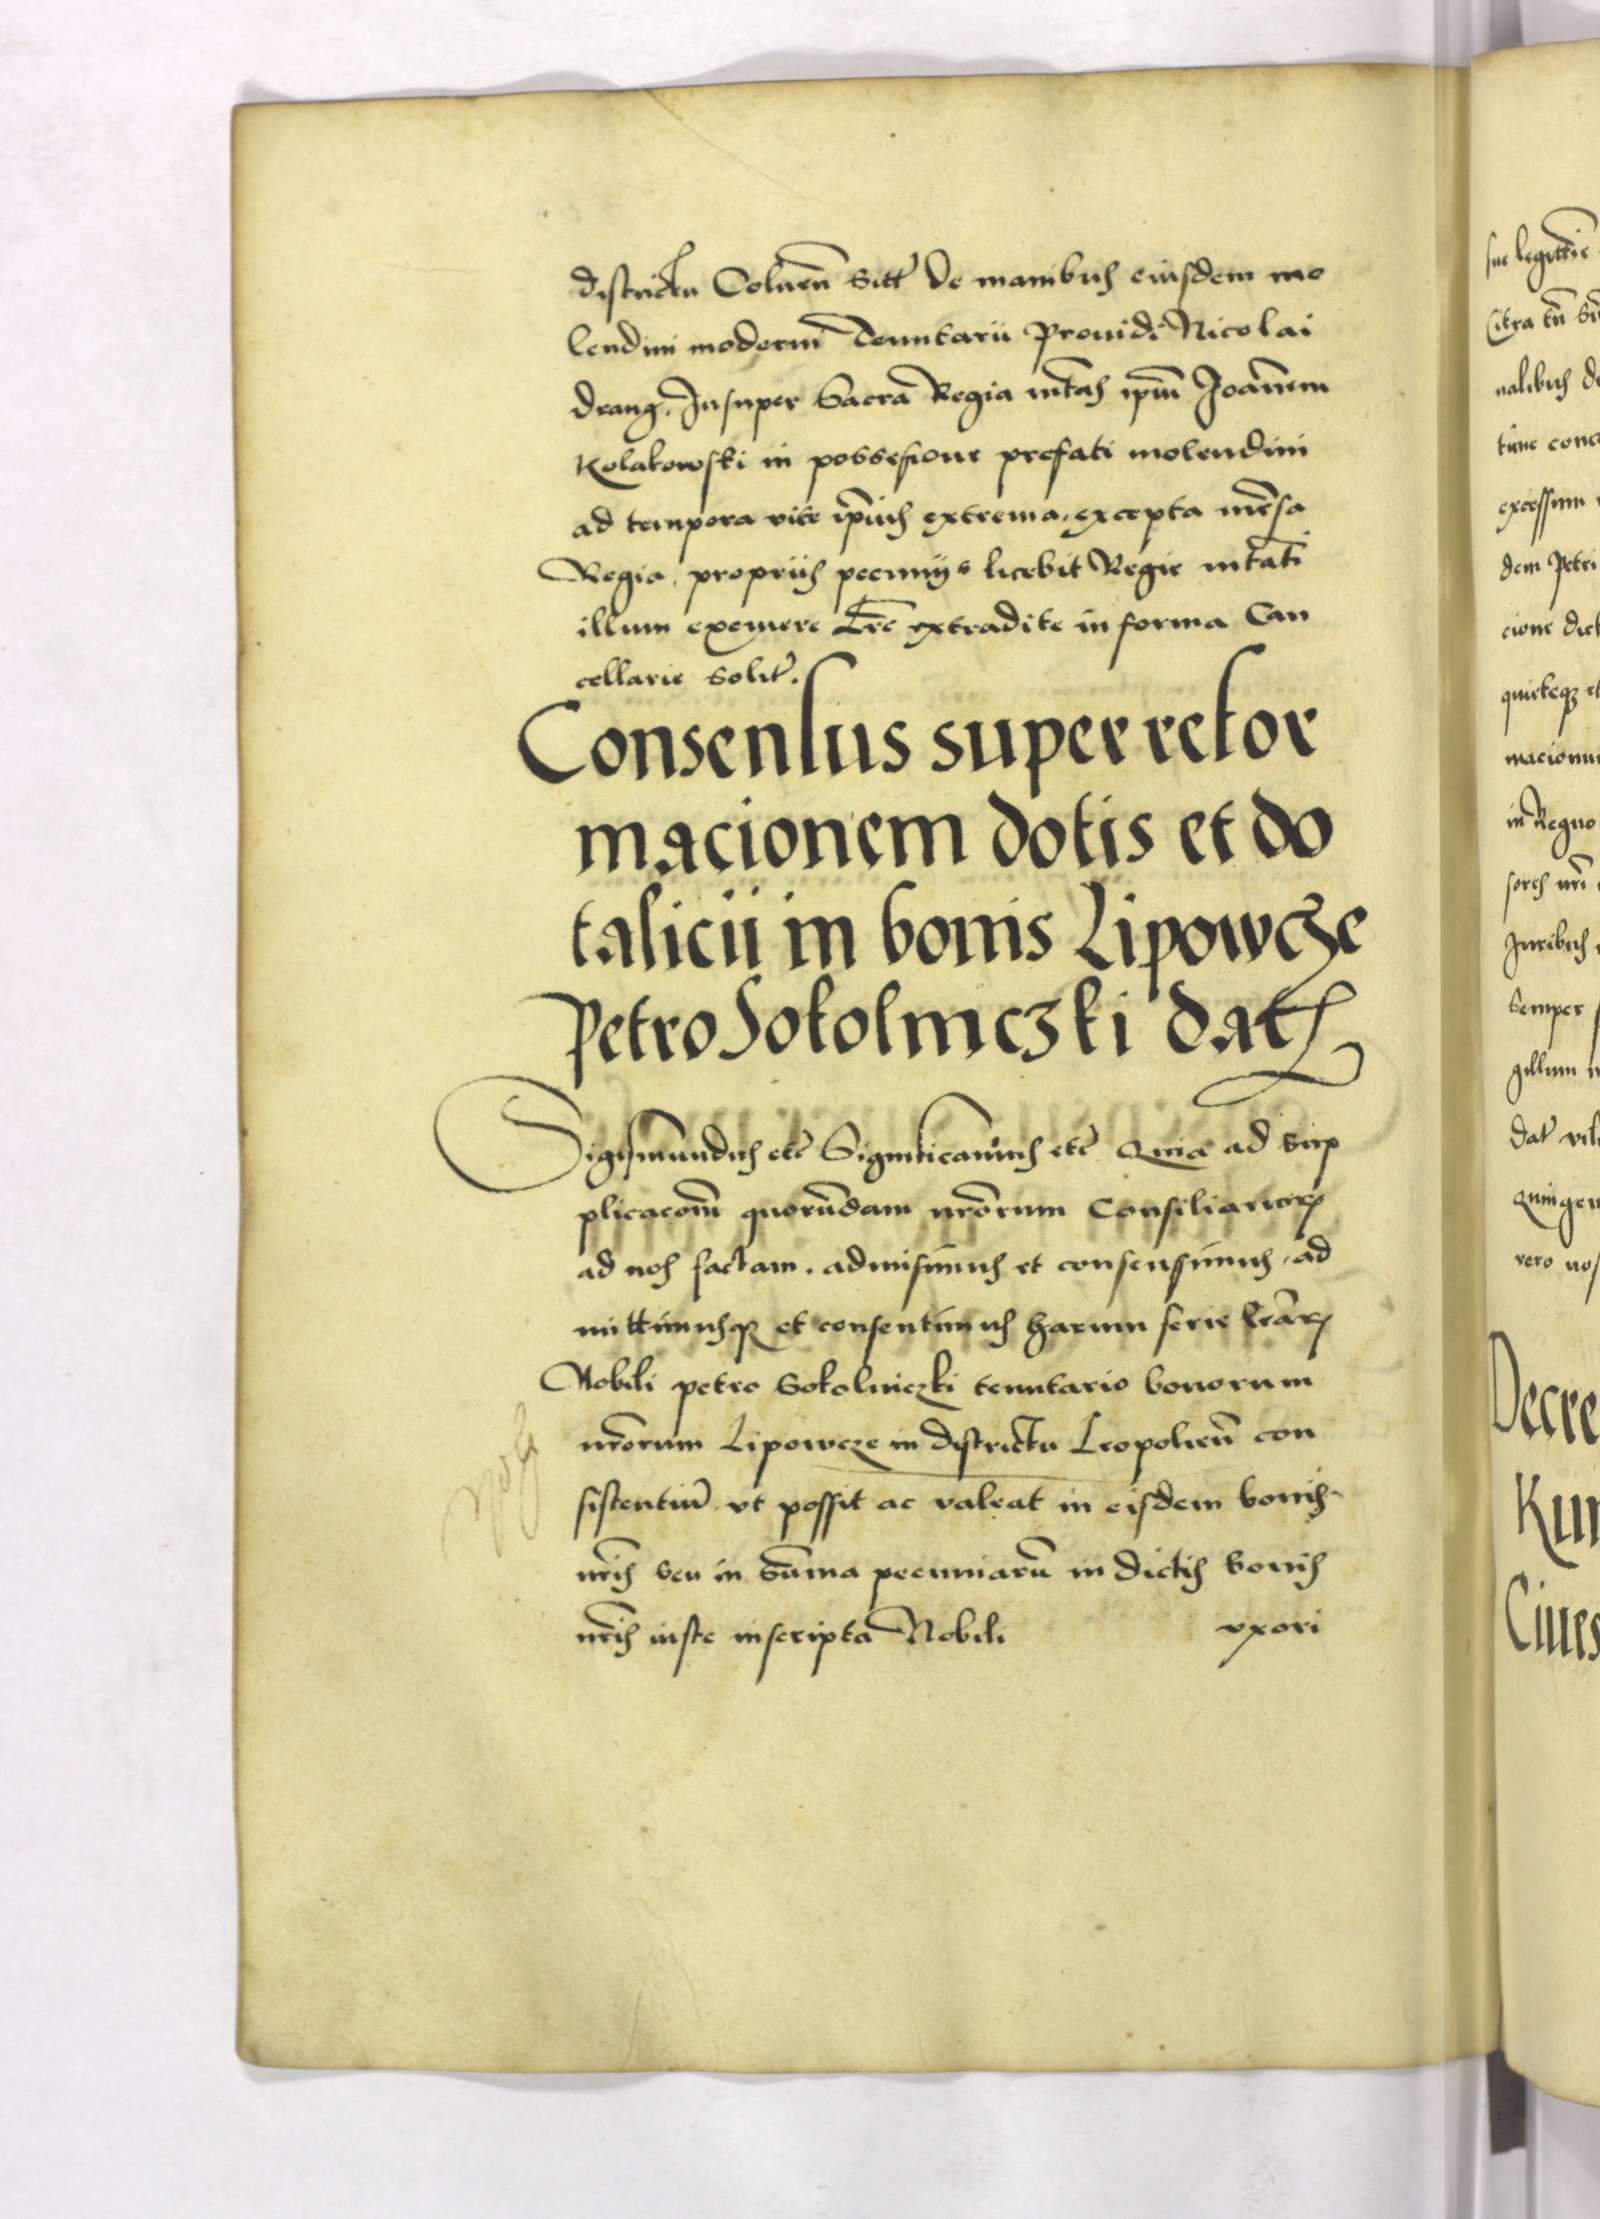 districtu Coluen̄ Sitt̄ de manibus eiusdem mo
lendini moderni Tenutarii Prouidi Nicolai
drang. Insuper Sacra Regia mtas ipm̄ Joannem
Kolakowski in possesione prefati molendini
ad tempora vite ipius extrema, excepta mensa
Regia, propriis pecuniis licebit Regie mtati
illum exemere Lrē extradite in forma Can
cellarie solit̄.
Consensus super refor
macionem dotis et do
talicii in bonis Lipowcze
Petro Sokolniczki dat
Sigismundus etc̄ Significamus etc̄ Quia ad sup
plicacom̄ quorūdam nrōrum Consiliarior
ad nos factam. admisimus et consensimus, ad
mittimusq et consentimus harum serie lrār
Nobili petro Sokolniczki tenutario bonorum
nrōrum Lipowcze in districtu Leopolien̄ con
sistentiū. vt possit ac valeat in eisdem bonis
nrīs seu in Sūma pecuniarū in dictis bonis
nrīs iuste inscripta Nobili vxori
sue legittīe
Citra tn̄
nalibus
tūne
excessum
dem Petri
cione dict
quieteq et
macionum
in Regno
sores nrī
Juribus
Semper
gillum
dat̄
Quingen
vero nos
Decre
Kun
Ciues